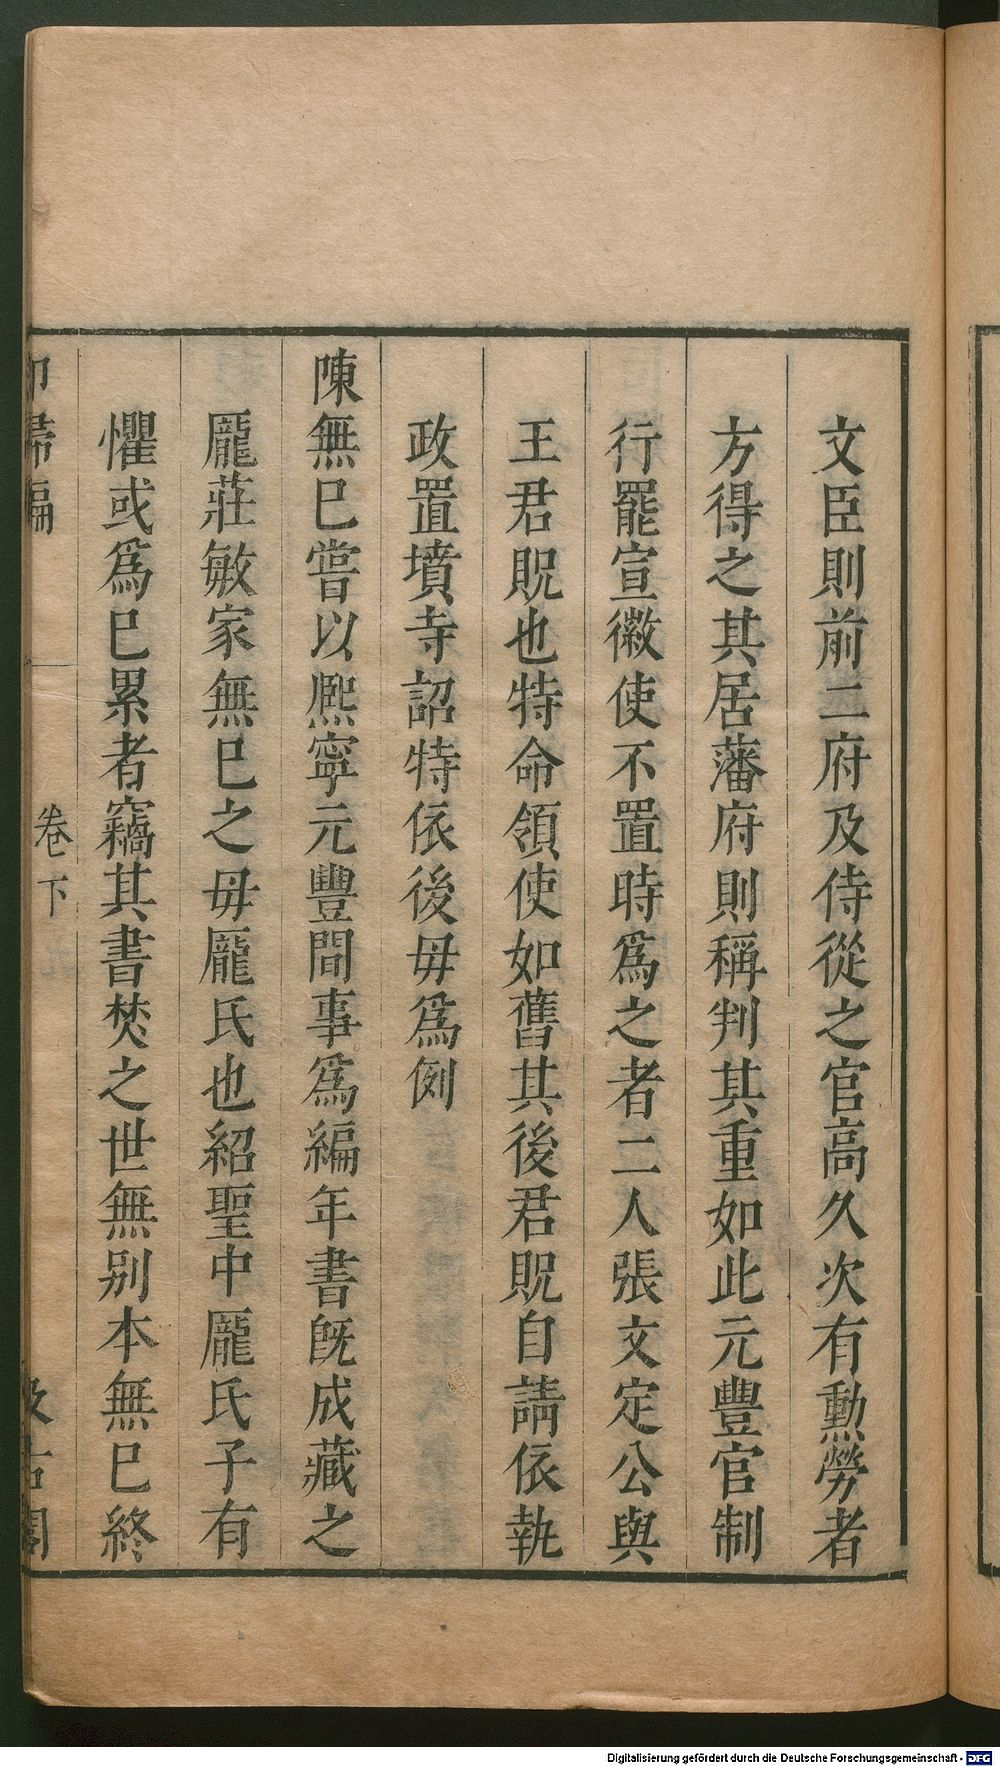 文臣則前二府及侍從之官高久次有勲勞者
方得之其居藩府則稱判其重如此元豐官制
行罷宣徽使不置時爲之者二人張文定公與
王君貺也特命領使如舊其後君貺自請依執
政置墳寺詔特依後毋爲例
陳無巳嘗以熈寧元豐間事爲編年書旣成藏之
龎莊敏家無巳之毋龎氏也紹聖中龎氏子有
懼或爲巳累者竊其書焚之世無别本無巳終
卻掃編
卷下
汲古閣
Digitalisierung gefördert durch die Deutsche Forschungsgemeinschaft - DFG